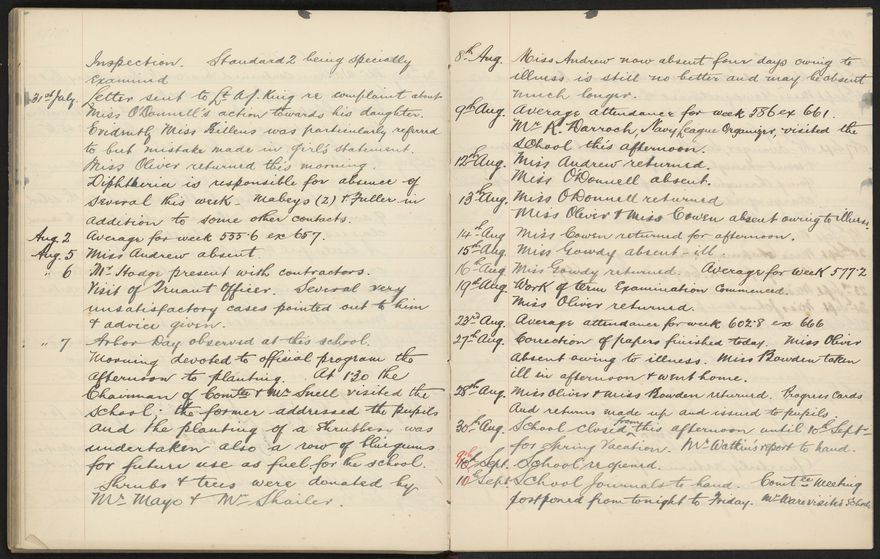 Inspection. Standard 2 being specially
Examined
31st July. Letter sent to Lt A.J. King re complaint about
Miss O'Donnell's action towards his daughter.
Evidently Miss Dillens was particularly referred
to but mistake made in girl's statement.
Miss Oliver returned this morning.
Diphtheria is responsible for absence of
several this week. Mabeys (2) & Fuller in
addition to some other contacts.
Aug 2 Average for week 555·6 ex 657.
Aug. 5 Miss Andrew absent.
" 6 Mr Hodge present with contractors.
Visit of Truant Officer. Several very
unsatisfactory cases pointed out to him
& advice given.
" 7 Arbor Day observed at this school.
Morning devoted to official program the
afternoon to planting. At 1·30 the
Chairman of Comtee & Mr Snell visited the
school; the former addressed the pupils
and the planting of a shrubbery was
undertaken also a row of bluegums
for future use as fuel for the school.
Shrubs & trees were donated by
Mr Mayo & Mr Shailer.
8th Aug. Miss Andrew now absent four days owing to
illness is still no better and may be absent
much longer.
9th Aug. Average attendance for week 586 ex 661.
Mr R. Darroch, Navy League Organizer, visited the
school this afternoon.
12th Aug. Miss Andrew returned.
Miss O'Donnell absent.
13th Aug. Miss O'Donnell returned
Miss Oliver & Miss Cowen absent owing to illness.
14th Aug Miss Cowen returned for afternoon.
15th Aug. Miss Gowdy absent - ill.
16th Aug Miss Gowdy returned. Average for week 577·2
19th Aug Work of term Examination Commenced.
Miss Oliver returned.
23rd Aug. Average attendance for week 602·8 ex 666
27th Aug. Correction of papers finished today. Miss Oliver
absent owing to illness. Miss Bowden taken
ill in afternoon & went home.
28th Aug. Miss Oliver & Miss Bowden returned. Progress Cards
and returns made up and issued to pupils.
30th Aug. School closed from this afternoon until 10th Sept
for Spring Vacation. Mr Watkin's report to hand.
9th Sept. School reopened.
10th Sept School Journals to hand. Comtee Meeting
postponed from tonight to Friday. Mr Ware visited School